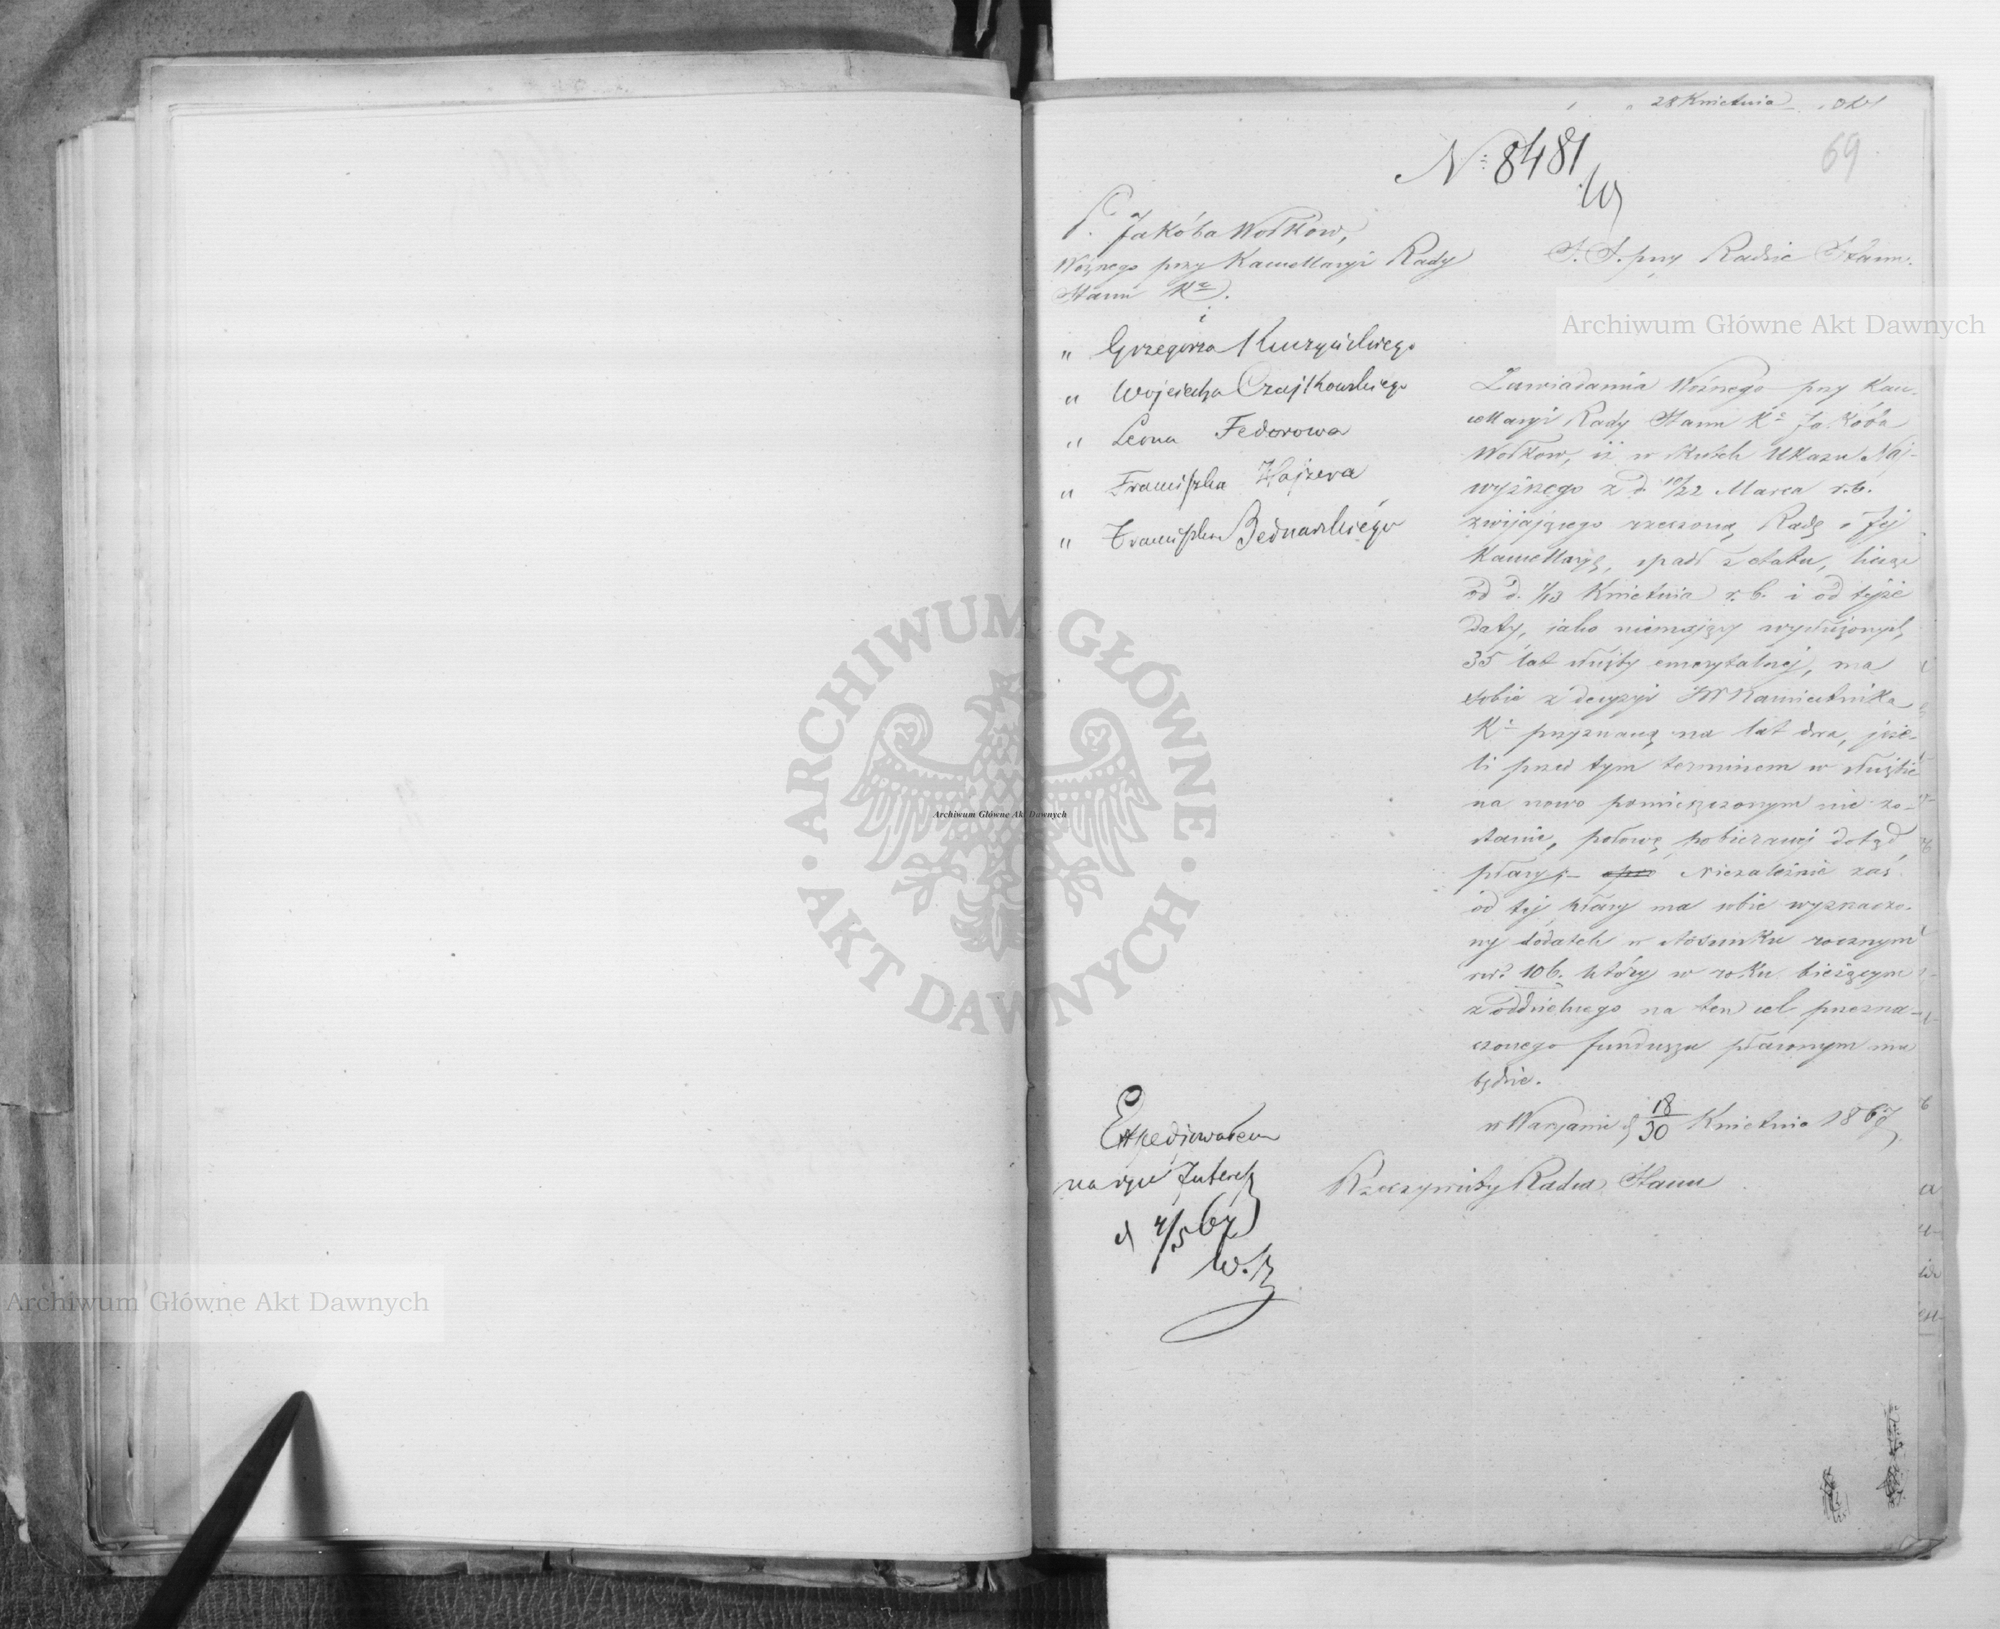 28 Kwietnia
69
N: 8481
P. Jakóba Wołkow,
Woźnego przy Kancellaryi Rady
Stanu Kr.
i
" Grzegorza
" Wojciecha Czajkowskiego
" Leona Fedorowa
" Franciszka Hajzera
" Franciszka Bednarskiego
S. S. przy Radzie Stanu.
Zawiadamia Woźnego przy Kan-
cellaryi Rady Stanu Kr. Jakóba
Wołkow, iż w skutek Ukazu Naj-
wyższego z d. 10/22 Marca r. b.
zwijającego rzeczoną Radę i Jej
Kancellaryę, spadł z etatu, licząc
od d. 1/13 Kwietnia r. b. i od tejże
daty, jako niemający wysłużonych
35 lat służby emerytalnej, ma
sobie z decyzyi JW Namiestnika
K. przyznaną na lat dwa, jeże-
li przed tym terminem w służbie
na nowo pomieszczonym nie zo-
stanie, połowę pobieranej dotąd
płacy, – Niezależnie zaś
od tej płacy ma sobie wyznaczo-
ny dodatek w stosunku rocznym
rsr. 106. który w roku bieżącym
z oddzielnego na ten cel przezna-
czonego funduszu płaconym mu
będzie.
w Warszawie d 18/30 Kwietnia 1867
Rzeczywisty Radca Stanu
Expedjowałem
na ręce
d 4/5 67
W.
Archiwum Główne Akt Dawnych
Archiwum Główne Akt Dawnych
Archiwum Główne Akt Dawnych
ARCHIWUM GŁÓWNE · AKT DAWNYCH ·